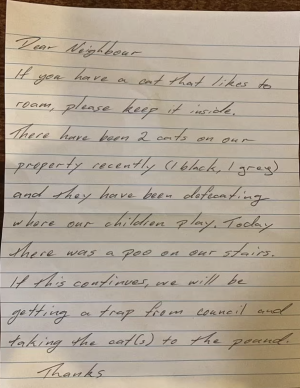 Dear Neighbour
If you have a cat that likes to
roam, please keep it inside.
There have been 2 cats on our
property recently (1 black, 1 grey)
and they have been defecating
where our children play. Today
there was a poo on our stairs.
If this continues, we will be
getting a trap from council and
taking the cat(s) to the pound.
Thanks